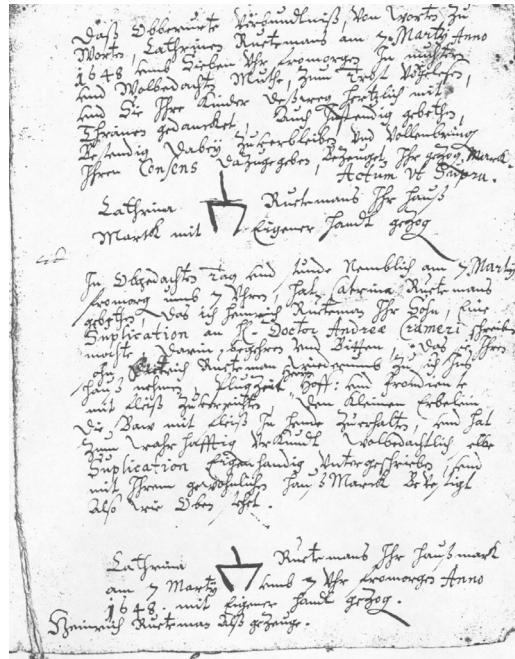 Daß Obberurte Verbundtniß, Von Worten Zu
Worten, Cathrinen Ruetemans am 7. Marty Anno
1648 umb Sieben Uhr fromorgen In nuchtern
und Wolbedachten Muthe, Zum Trost Vorgelesen,
und Sie Ihre Kinder deßweg hertzlich mit
Thränen gedancket, Auch Instendig gebethen,
Bestendig dabey Zuverbleiben Und Vollenbring
Ihren Consens dazugegeben, bezeuget Ihr gezog. Marck.
Actum Ut Supra.
Cathrina Ruetemans Ihr hauß
Marck mit Eigener handt gezog
In Obgedachten Tag und stunde Nemblich am 7. Marty
fromorg umb 7 Uhren, hat Caterina Ruetemans
gebethen, das ich Heinrich Rueteman Ihr Sohn, Eine
Suplication an H. Doctor Andreæ Crameri schreiben
mochte, darin begehren und Bitten, das Ihren
Rueteman wiederumb Zu sich Ins
hauß nehmen,
mit fleiß Zuverrichten, dem Kleinen Erbelin
Die Baw mit fleiß In hende Zuerhalten, und hat
Zum wahrhafftig Urkundt wolbedachtlich
Suplication Eigenhandig Untergeschrieben, und
mit Ihrem gewohnlichen haußMarck Bevestigt
Alß wie Oben stehet.
Cathrina Ruetemans Ihr haußmark
am 7 Marty umb 7 Uhr fromorgen Anno
1648. mit Eigener handt gezog.
Heinrich Rueteman Alß gezeuge.